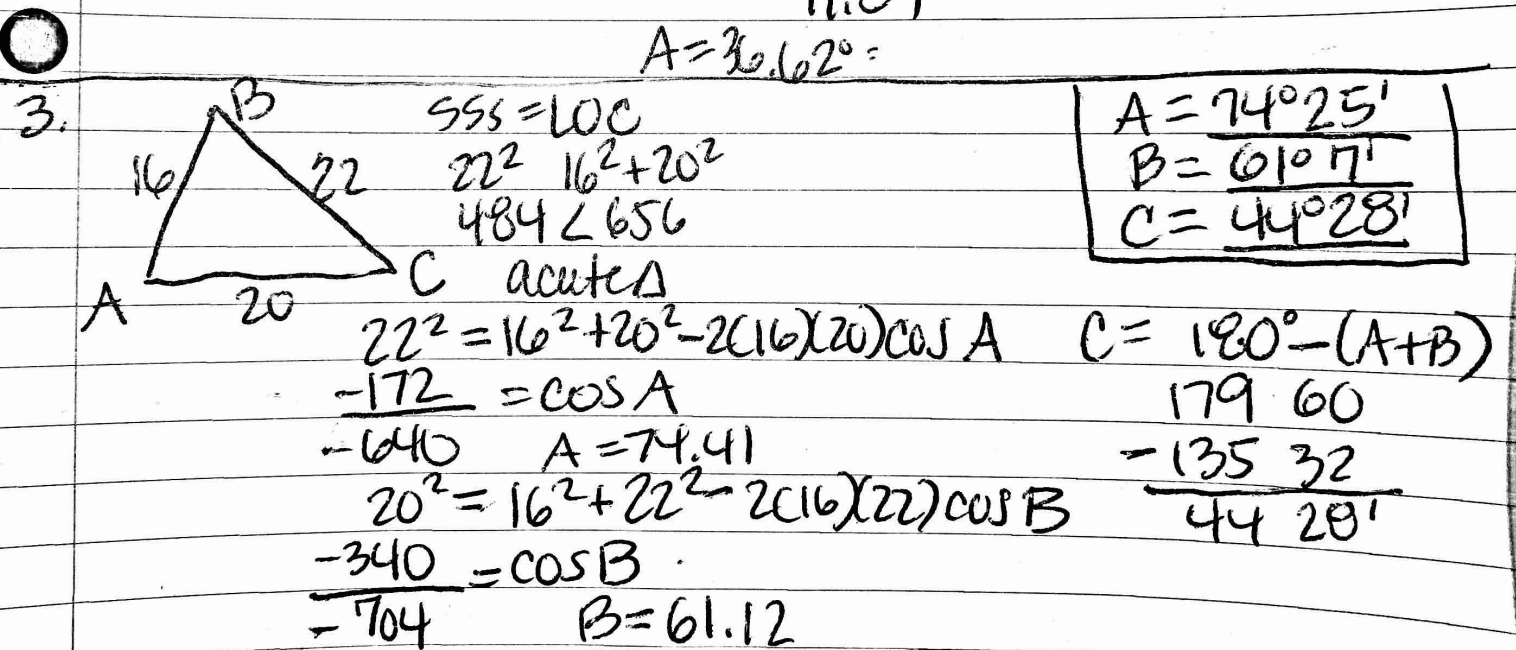 A=36.62°=
3.
B
16
22
A
20
C
SSS=LOC
22² 16²+20²
484<656
acute△
A=74°25'
B=61°7'
C=44°28'
22²=16²+20²-2(16)(20)cosA
-172/-640 =cosA
A=74.41
20²=16²+22²-2(16)(22)cosB
-340/-704 =cosB
B=61.12
C= 180°-(A+B)
179 60
-135 32
44 28'